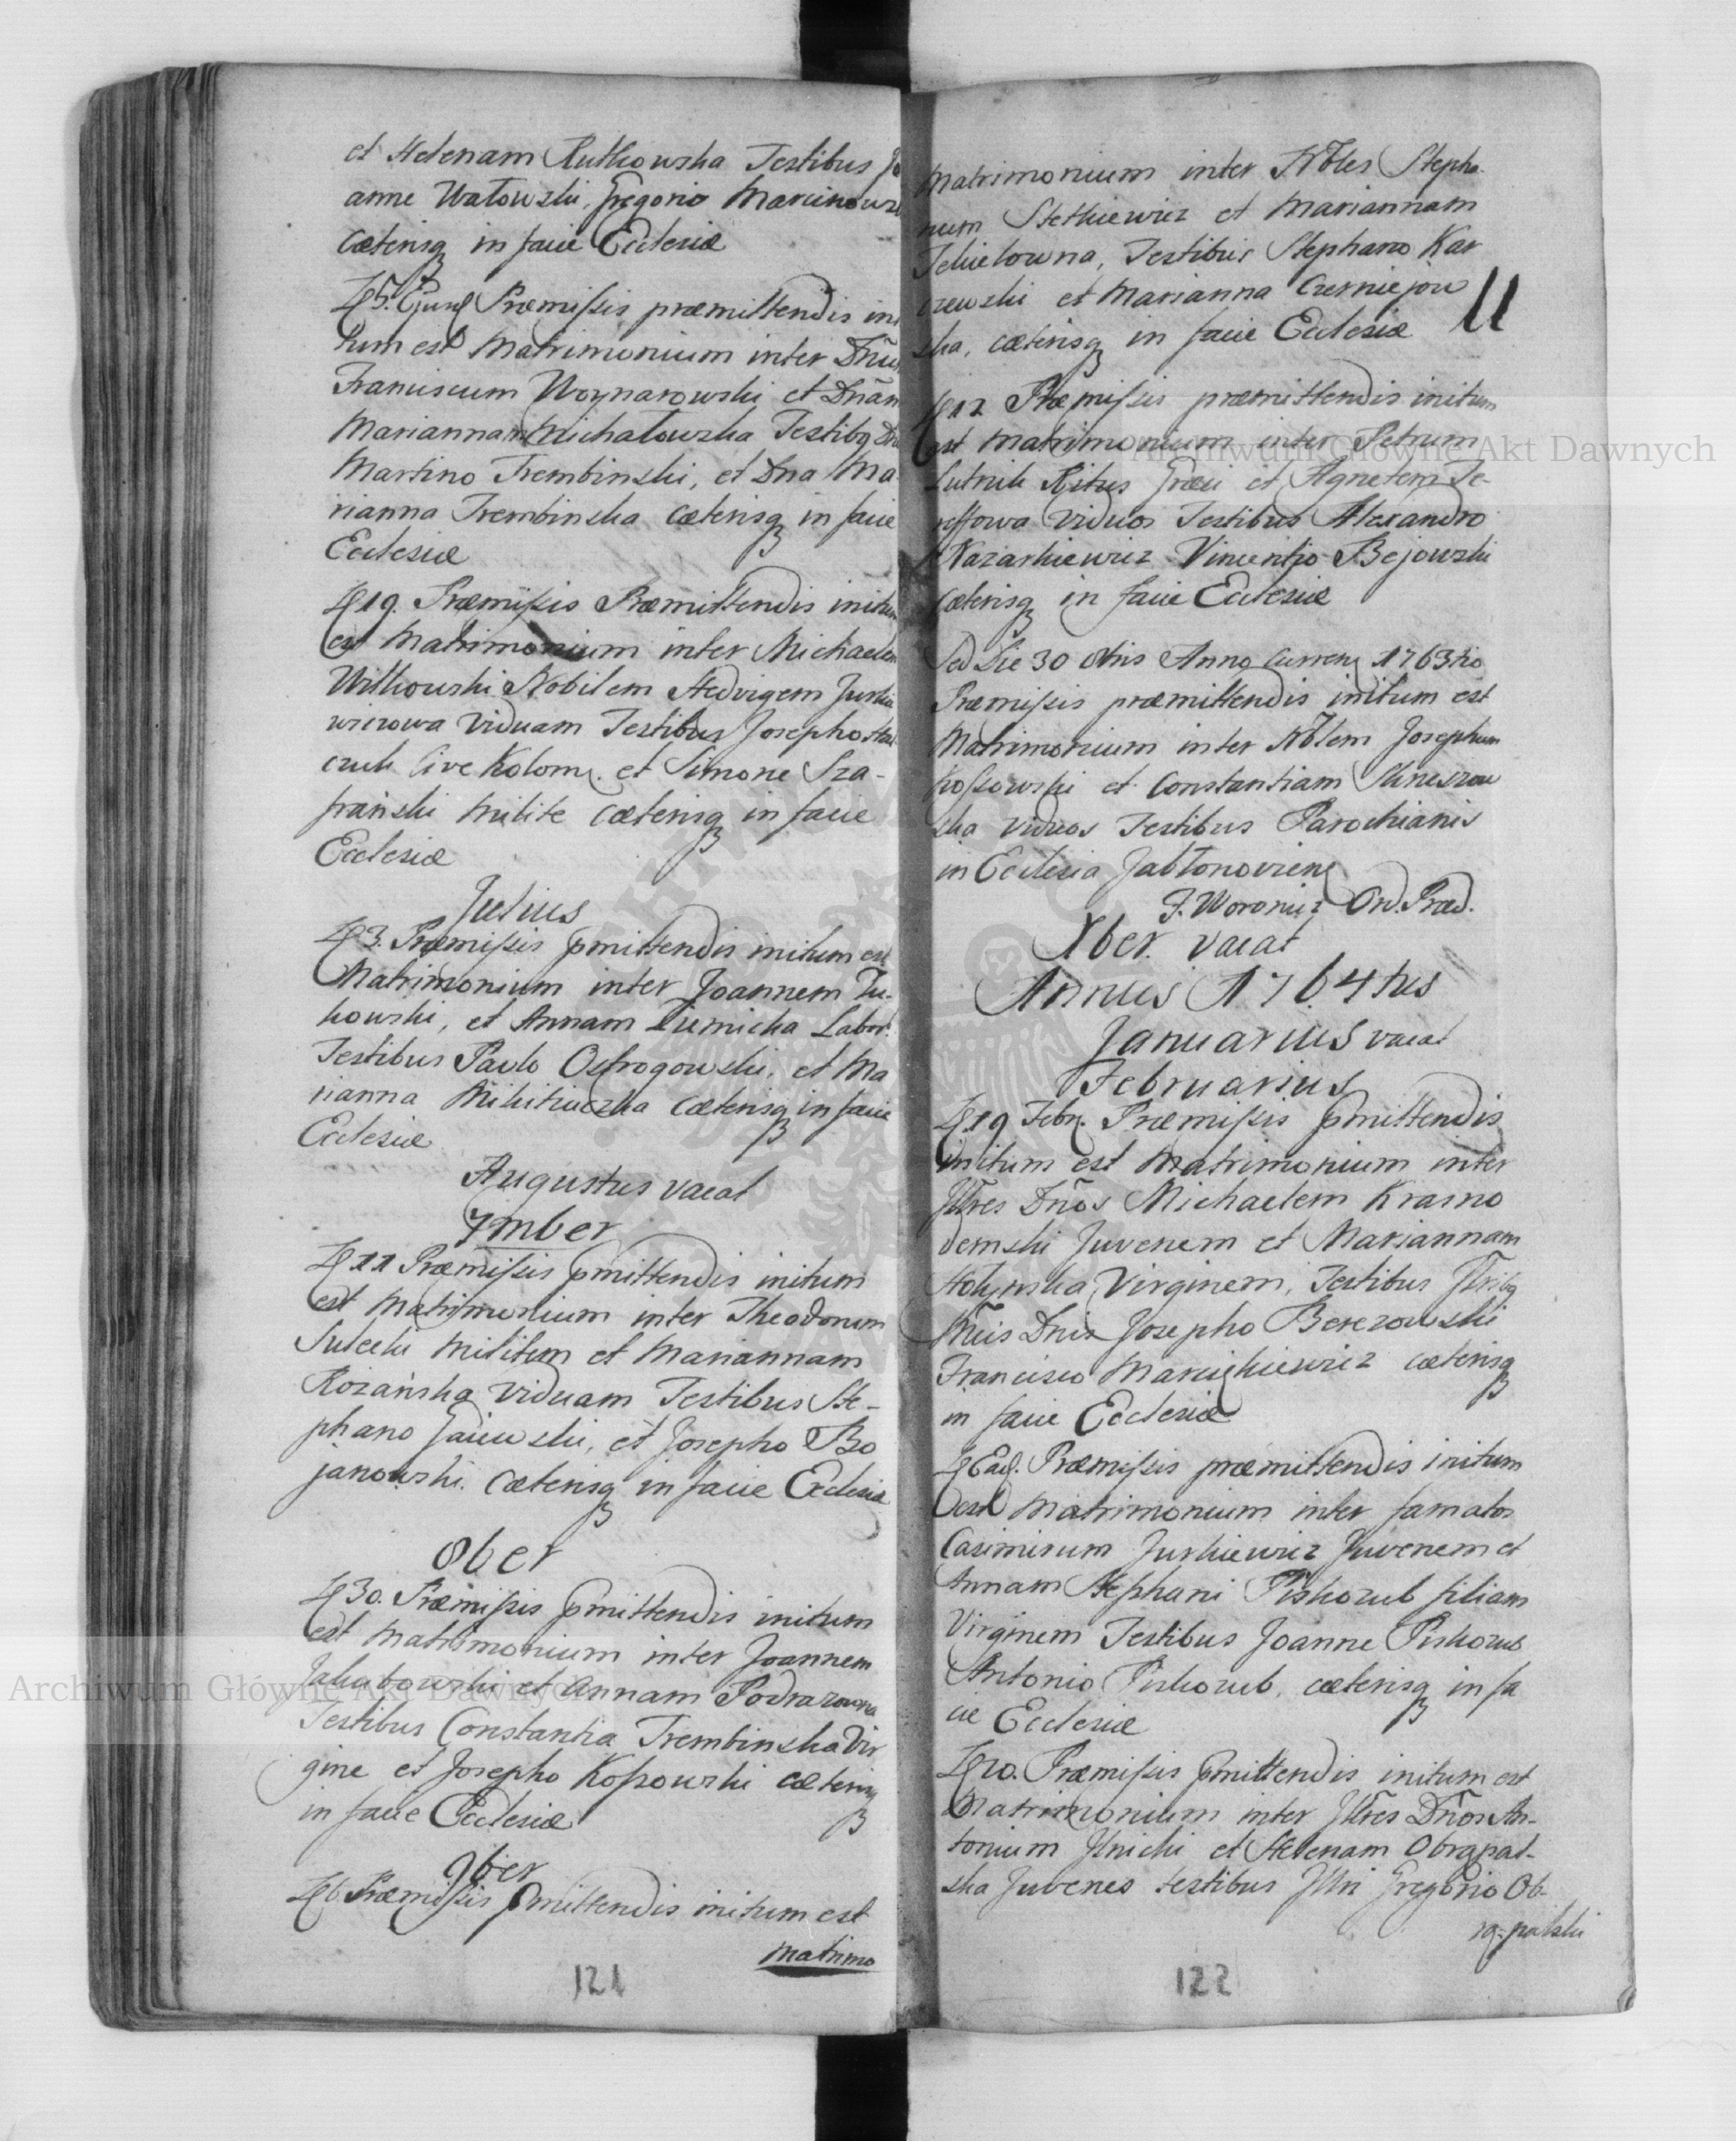 et Helenam Rutkowska Testibus Jo
anne Watowski, Gregorio Marcinows
cæterisq in facie Ecclesiæ
15. Ejusd Præmissis præmittendis ini
tum est Matrimonium inter Dnũ
Franciscum Woynarowski et Dnãm
Mariannam Michałowska Testibq Dno
Martino Trembinski, et Dna Ma
rianna Trembinska cæterisq in facie
Ecclesiæ
19. Præmissis Præmittendis initum
est Matrimonium inter Michaelem
Witkowski Nobilem Hedvigem Jurkie
wiczowa Viduam Testibus Josepho
czuk sive Kolom. et Simone Sza-
frański Milite cæterisq in facie
Ecclesiæ
Julius
3. Præmissis pmittendis initum est
Matrimonium inter Joannem Tu-
kowski, et Annam Ziemicka Labor.
Testibus Paulo Ostrogowski, et Ma
rianna Mikiticzka cæterisq in facie
Ecclesiæ
Augustus vacat
7mber
11 Præmissis pmittendis initum
est Matrimonium inter Theodorum
Sulecki Militem et Mariannam
Rozańska Viduam Testibus Ste-
phano Gaiewski, et Josepho Bo
janowski. cæterisq in facie Ecclesiæ
8ber
30. Præmissis pmittendis initum
est Matrimonium inter Joannem
Jakubowski et Annam Podrazowna
Testibus Constantia Trembinska Vir
gine et Josepho Kossowski cæterisq
in facie Ecclesiæ
9ber
6 Præmissis pmittendis initum est
Matrimo
121
Matrimonium inter Nbles Stepha
num Stetkiewicz et Mariannam
Testibus Stephano Kar
czewski et Marianna Czerniejow
ska, cæterisq in facie Ecclesiæ
11
12 Præmissis præmittendis initum
est Matrimonium inter Petrum
Lutnik Ritus Græci et Agnetem Te-
reffowa Viduos Testibus Alexandro
Nazarkiewicz Vincentio Bejowski
cæterisq in facie Ecclesiæ
Sed Die 30 8bris Anno curren 1763tio
Præmissis præmittendis initum est
Matrimonium inter Nblem Josephum
Kossowski et Constantiam
ska viduos Testibus Parochianis
in Ecclesia Jabłonovien
F. Woronicz Ord. Præd.
Xber. vacat
Annus 1764tus
Januarius vacat
Februarius
19 Febr. Præmissis pmittendis
initum est Matrimonium inter
Illres Dños Michaelem Krasno
demski Juvenem et Mariannam
Hotynska Virginem, Testibus Illribq
Mcis Dnis Josepho Berezowski
Francisco Marcişkiewicz cæterisq
in facie Ecclesiæ
Ead. Præmissis præmittendis initum
est Matrimonium inter famatos
Casimirum Jurkiewicz Juvenem et
Annam Stephani Piskorub filiam
Virginem Testibus Joanne Piskorub
Antonio Piskorub, cæterisq in fa
cie Ecclesiæ
20. Præmissis pmittendis initum est
Matrimonium inter Illres Dños An-
tonium Ilnicki et Helenam Obrąpal-
ska Juvenes testibus Illri Gregorio Ob-
rąpalski
122
Archiwum Główne Akt Dawnych
Archiwum Główne Akt Dawnych